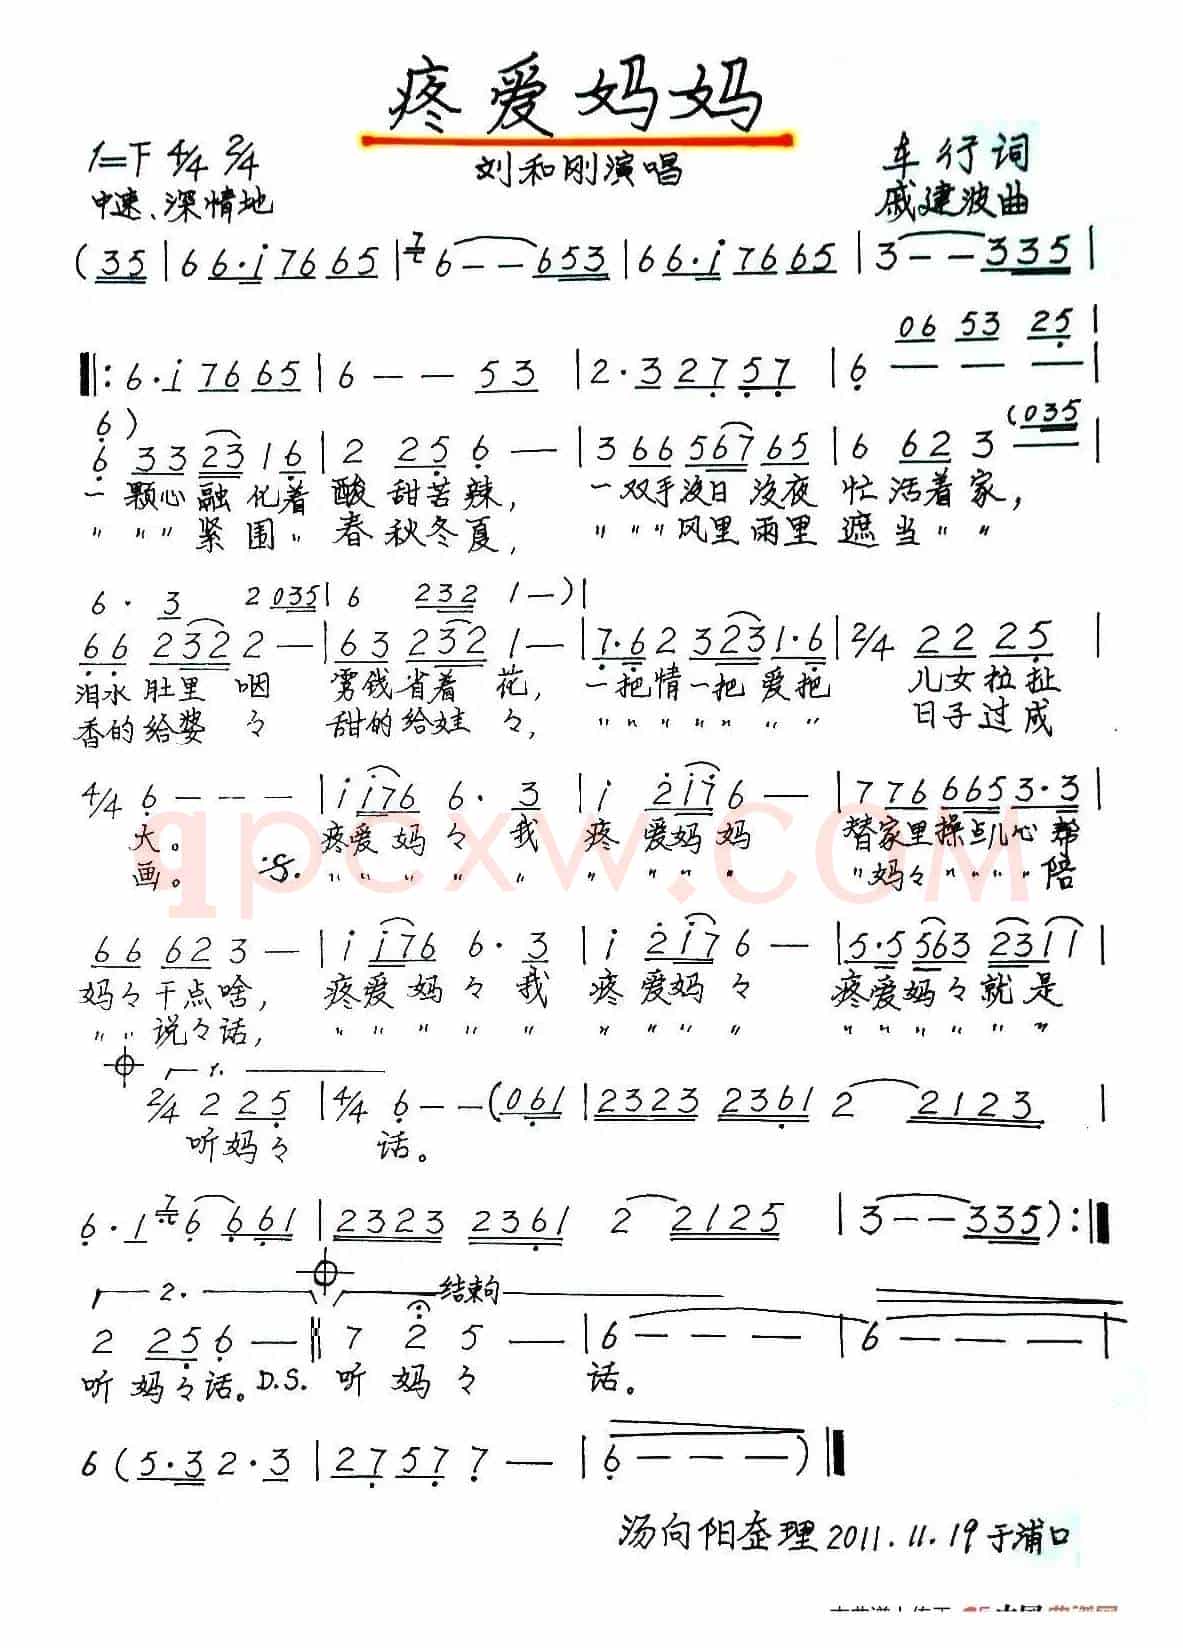 疼爱妈妈
1=F 4/4 2/4
刘和刚演唱
车行词
中速、深情地
戚建波曲
(35|66·i7665|76--653|66·i7665|3--335|
06 53 25|
‖:6·i7665|6--53|2·32757|6---|
6)
(035
6 33 23 1 6|2 25 6-|3 66 567 65|6 62 3-|
一颗心融化着酸甜苦辣,一双手没日没夜忙活着家,
〃〃〃紧围〃春秋冬夏,〃〃〃风里雨里遮当〃〃
6· 3 2 035|6 232 1-)|
66 232 2-|63 232 1-|7·62 3231·6|2/4 22 25|
泪水肚里咽 雾钱省着花,一把情一把爱把 儿女拉扯
香的给婆々 甜的给娃々,〃〃〃〃〃〃〃 日子过成
4/4 6---|i i76 6·3|i 2i7 6-|776 665 3·3|
大。 疼爱妈々我 疼爱妈妈 替家里操点儿心帮
画。 〃〃〃〃〃 〃〃〃〃 〃妈々〃〃〃〃陪
66 62 3-|i i76 6·3|i 2i7 6-|5·5 563 2311|
妈々干点啥,疼爱妈々我 疼爱妈々 疼爱妈々就是
〃〃说々话,〃〃〃〃〃 〃〃〃〃 〃〃〃〃〃〃
1.
2/4 2 25|4/4 6--(061|2323 2361 2 2123|
听妈々 话。
6·1 76 661|2323 2361 2 2125|3--335):‖
2. 结束句
2 25 6-‖7 2 5-|6---|6---|
听妈々话。D.S. 听妈々 话。
6(5·32·3|27577-|6---)‖
汤向阳整理2011.11.19于浦口
qpcxw.com